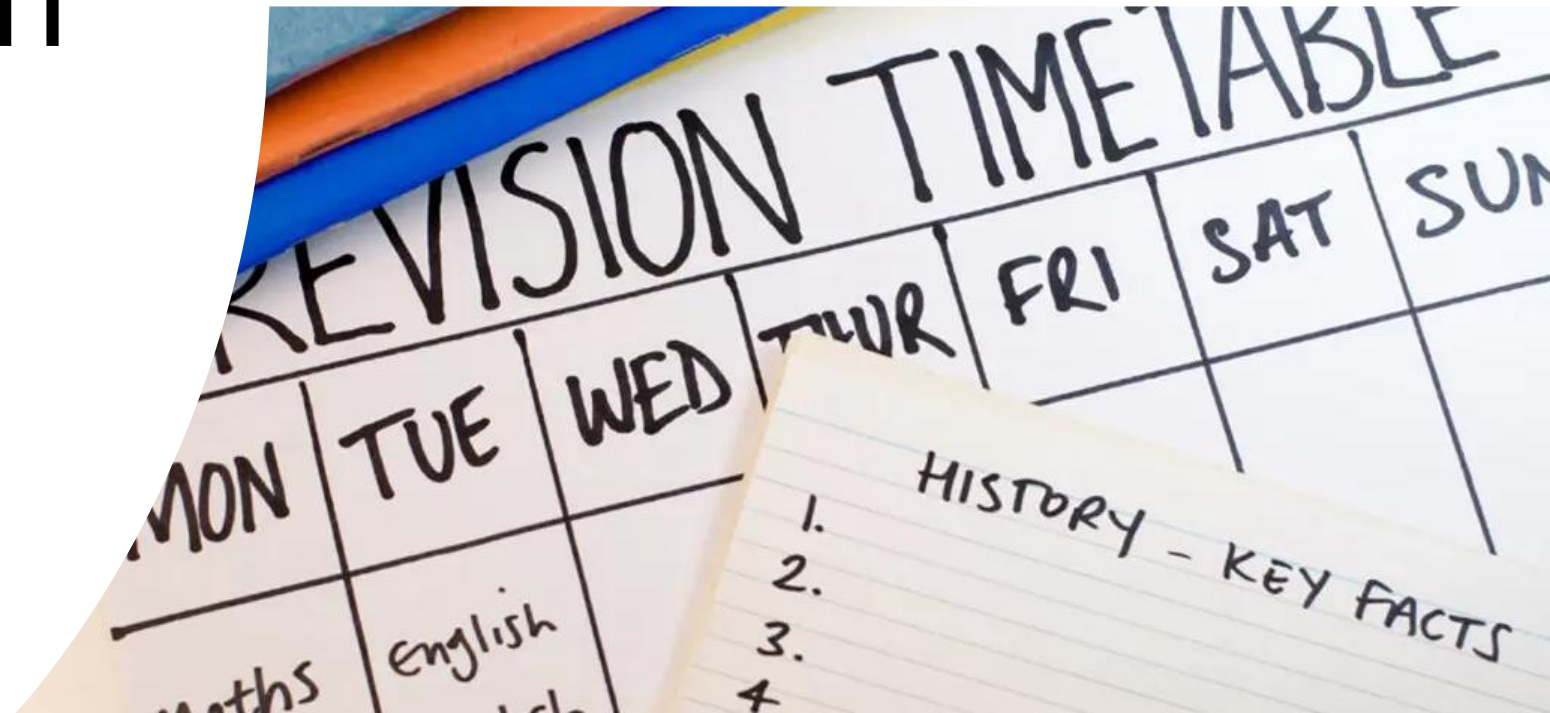 REVISION TIMETABLE
MON TUE WED THUR FRI SAT SUN
Maths English
HISTORY - KEY FACTS
1.
2.
3.
4